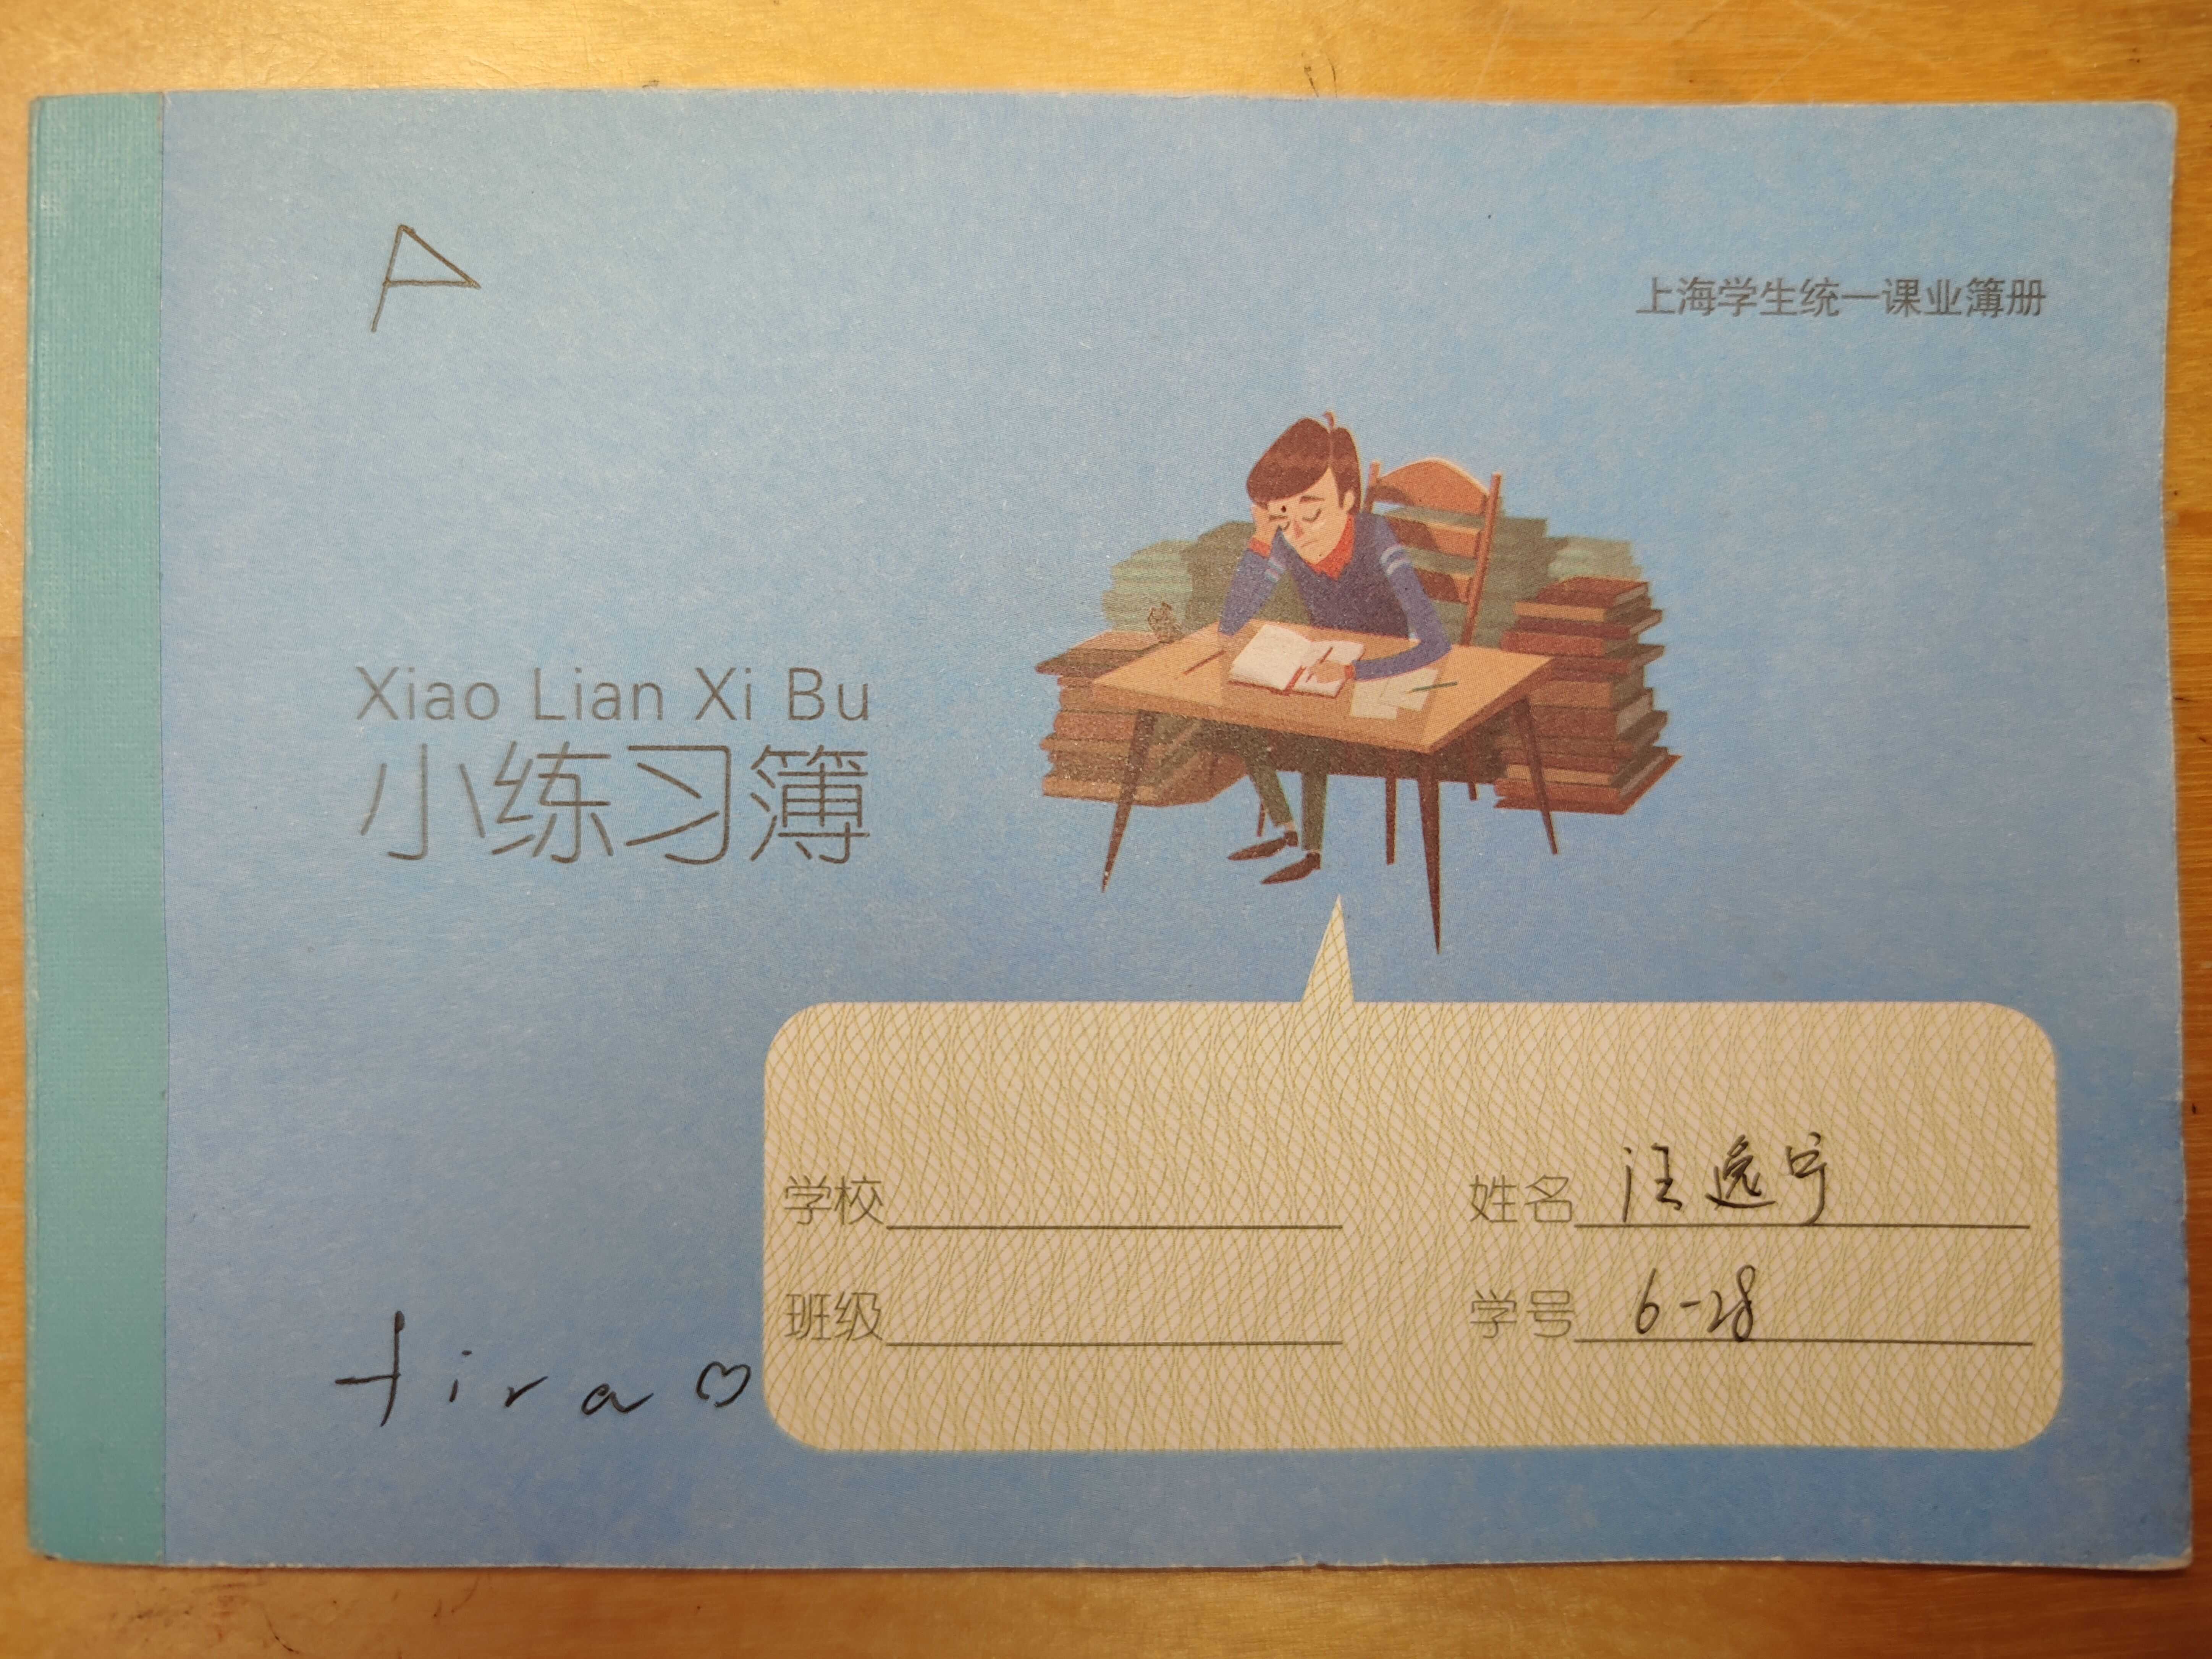 上海学生统一课业簿册
Xiao Lian Xi Bu
小练习簿
学校
姓名 汪逸宁
班级
学号 6-28
tira♡